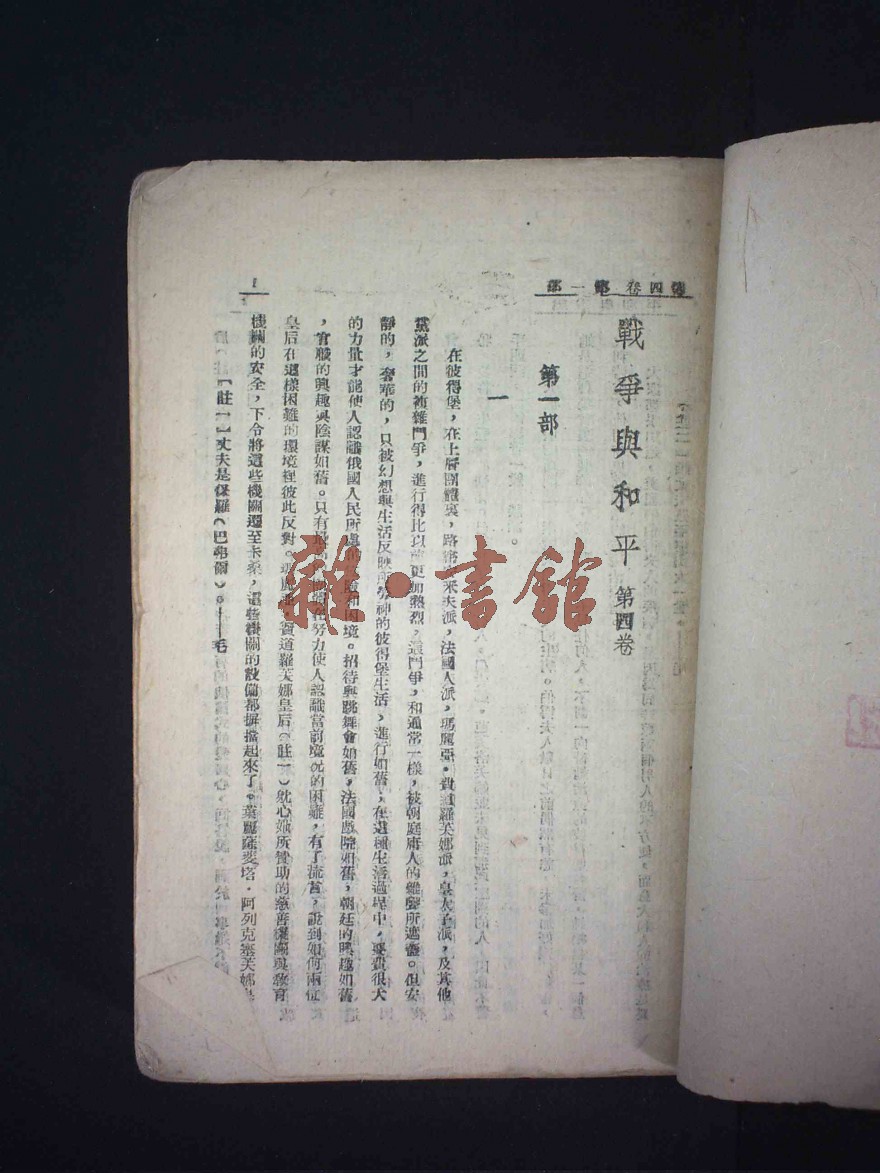 第四卷 第一部
戰爭與和平 第四卷
第一部
一
在彼得堡，在上層團體裏，路密安采夫派，法國人派，瑪麗亞·費道羅芙娜派，皇太子派，及其他
黨派之間的複雜鬥爭，進行得比以前更加熱烈，這鬥爭，和通常一樣，被朝庭庸人的雜聲所遮蓋。但安
靜的，奢華的，只被幻想與生活反映所勞神的彼得堡生活，進行如舊；在這種生活過程中，要費很大
的力量才能使人認識俄國人民所處的危險和困境。招待與跳舞會如舊，法國戲院如舊，朝廷的興趣如舊
，官職的興趣與陰謀如舊。只有最高方面在努力使人認識當前境況的困難，有了流言，說到如何兩位
皇后在這樣困難的環境裡彼此反對。瑪麗亞·費道羅芙娜皇后（註一）耽心她所贊助的慈善機關與教育
機關的安全，下令將這些機關遷至卡桑，這些機關的設備都摒擋起來了。葉麗薩斐塔·阿列克塞芙娜皇
【註一】丈夫是保羅（巴弗爾）。——毛
1
雜·書館